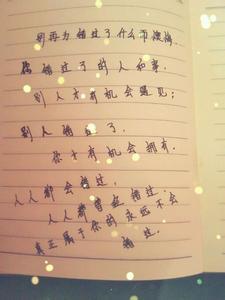 别再为错过了什么而懊悔.
你错过了的人和事.
别人才有机会遇见;
别人错过了.
你才有机会拥有.
人人都会错过,
人人都曾经错过.
真正属于你的永远不会
错过.